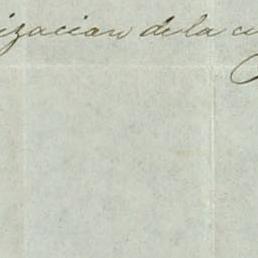 izacion de la